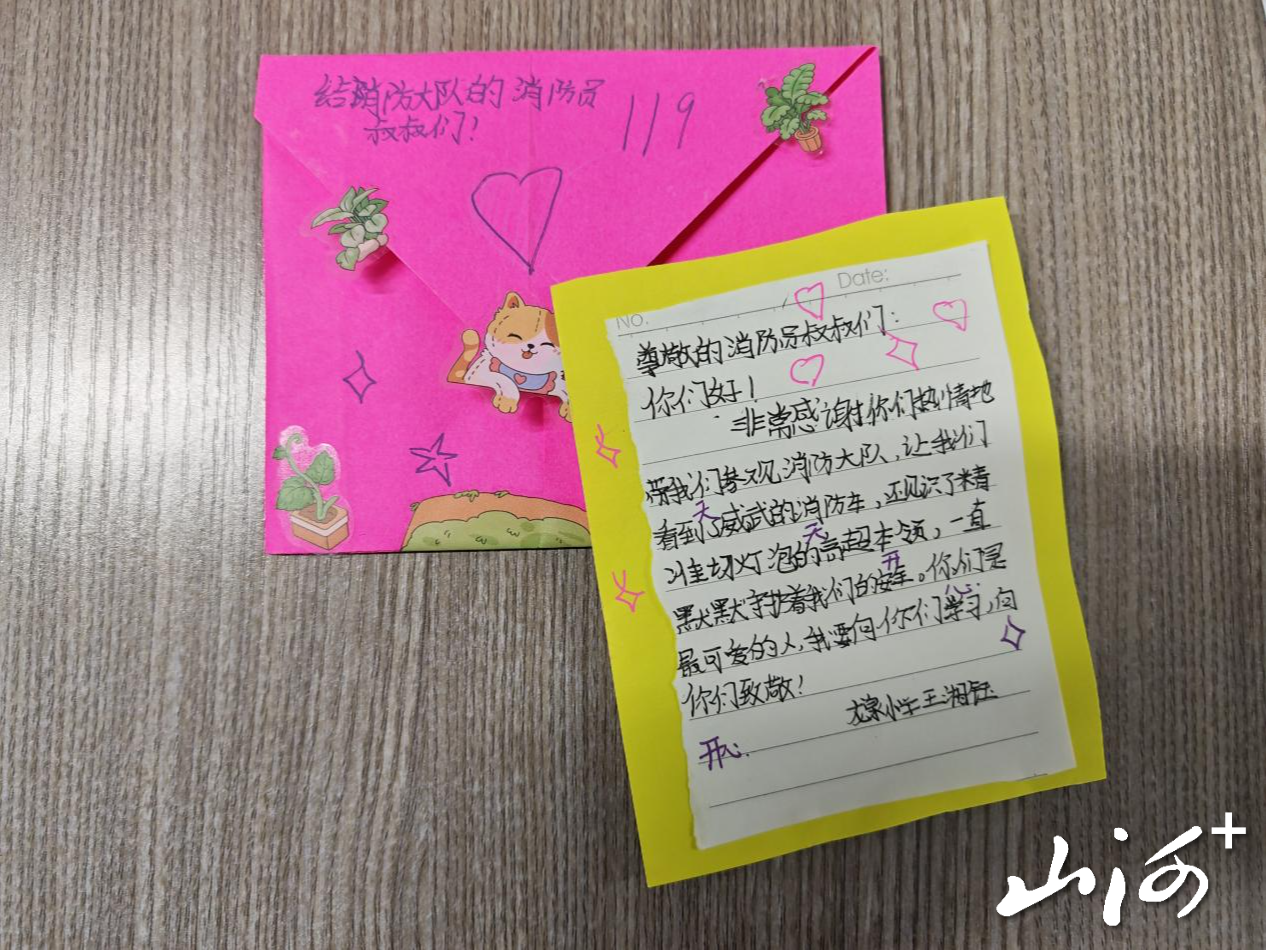 给消防大队的消防员
叔叔们！
119
No.
Date:
尊敬的消防员叔叔们：
你们好！
非常感谢你们热情地
带我们参观消防大队，让我们
看到了威武的消防车，还见识了精
准切灯泡的高超本领，一直
默默守护着我们的安全。你们是
最可爱的人，我要向你们学习，向
你们致敬！
小学王湘钰
天
天
开
心
开心.
山河+